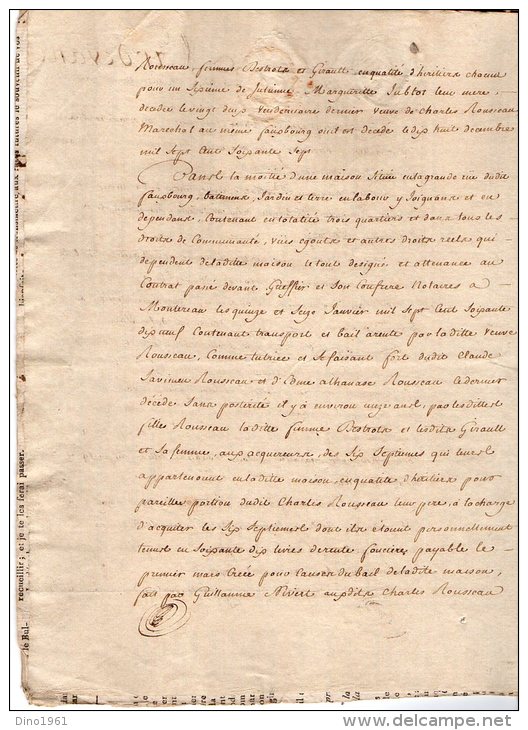 Rousseau, femmes Bestrots et Girault enqualité d'heritiers chacun
pour un Sixieme de Julienne Marguerette Jublot leur mere,
decedée le vingt deux vendemiaire dernier veuve de Charles Rousseau
Marechal au même fauxbourg ou il est decedé le dix huit decembre
mil sept Cent Soixante Sept
Dans la moitié d'une maison Située en la grande rue dudit
fauxbourg, batimens, Jardin et terre en labour y Joignans et en
dependans, Contenant en totalité trois quartiers et dans tous les
droits de Communauté, vuës egouts et autres droits reels qui
dependent de laditte maison le tout designé et attenance au
Contrat passé devant Gieffier et Son Confrere Notaires a
Montereau les quinze et Seize Janvier mil Sept Cent Soixante
dix neuf Contenant transport et bail arente par laditte veuve
Rousseau, Comme tutrice et Se faisant fort dudit Claude
Savinien Rousseau et d'Edme athanase Rousseau Ledernier
décédé Sans posterité il y a environ onze ans, par lesdittes
filles Rousseau laditte femme Bestrots et lesdits Girault
et Sa femme, aux acquereurs, des Six Septiemes qui leurs
appartenoient en laditte maison, en qualité d'heritiers pour
pareille portion dudit Charles Rousseau leur pere, à la charge
d'acquiter les Six Septiemes dont ils étoient personnellement
tenus en Soixante dix livres de rente fonciere payable le
premier mars Créée pour Causer du bail de ladite maison,
fait par Guillaume Nivert auxdits Charles Rousseau
recueillir; et je te les ferai passer.
Dino1961